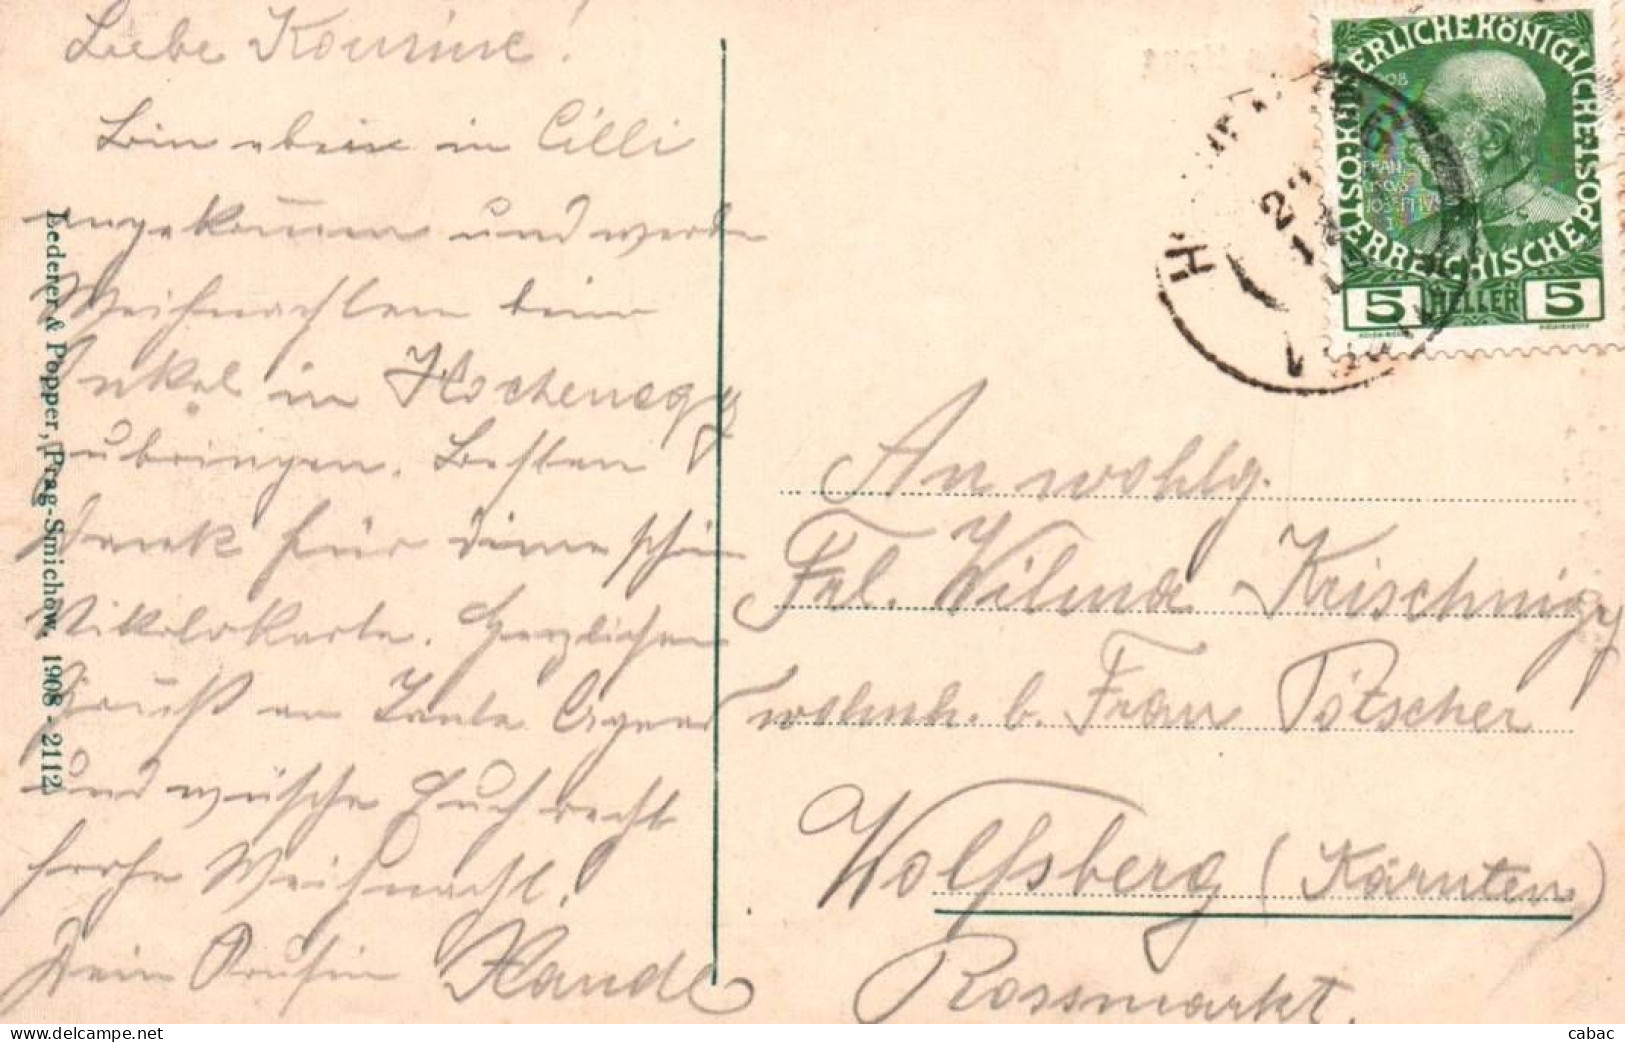 Liebe Kousine!
bin eben in Cilli
angekommen und werde
Weihnachten beim
Onkel in Hochenegg
zubringen. Besten
Dank für deine schöne
Nikolokarte. Herzlichen
Gruß an Tante Agnes
und wünsche Euch recht
frohe Weihnacht.
Dein Cousin
Lederer & Popper, Prag-Smichow. 1908 - 2112
KAISERLICHE KÖNIGLICHE ÖSTERREICHISCHE POST
1908
FRAN
CISCVS
JOSEPHVS
I
5 HELLER 5
An wohlg.
Frl. Wilma Krischnigg
wohnh. b. Frau Pötscher
Wolfsberg (Kärnten)
Rossmarkt.
cabac
www.delcampe.net